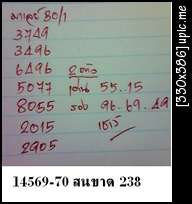 มาเลย์ 80/1
3749
3496
6496 2 ตัว
5077 เด่น 55.15
8055 รอง 96.69.49
2015
2905
14569-70 สนขาด 238
[330x386] upic.me